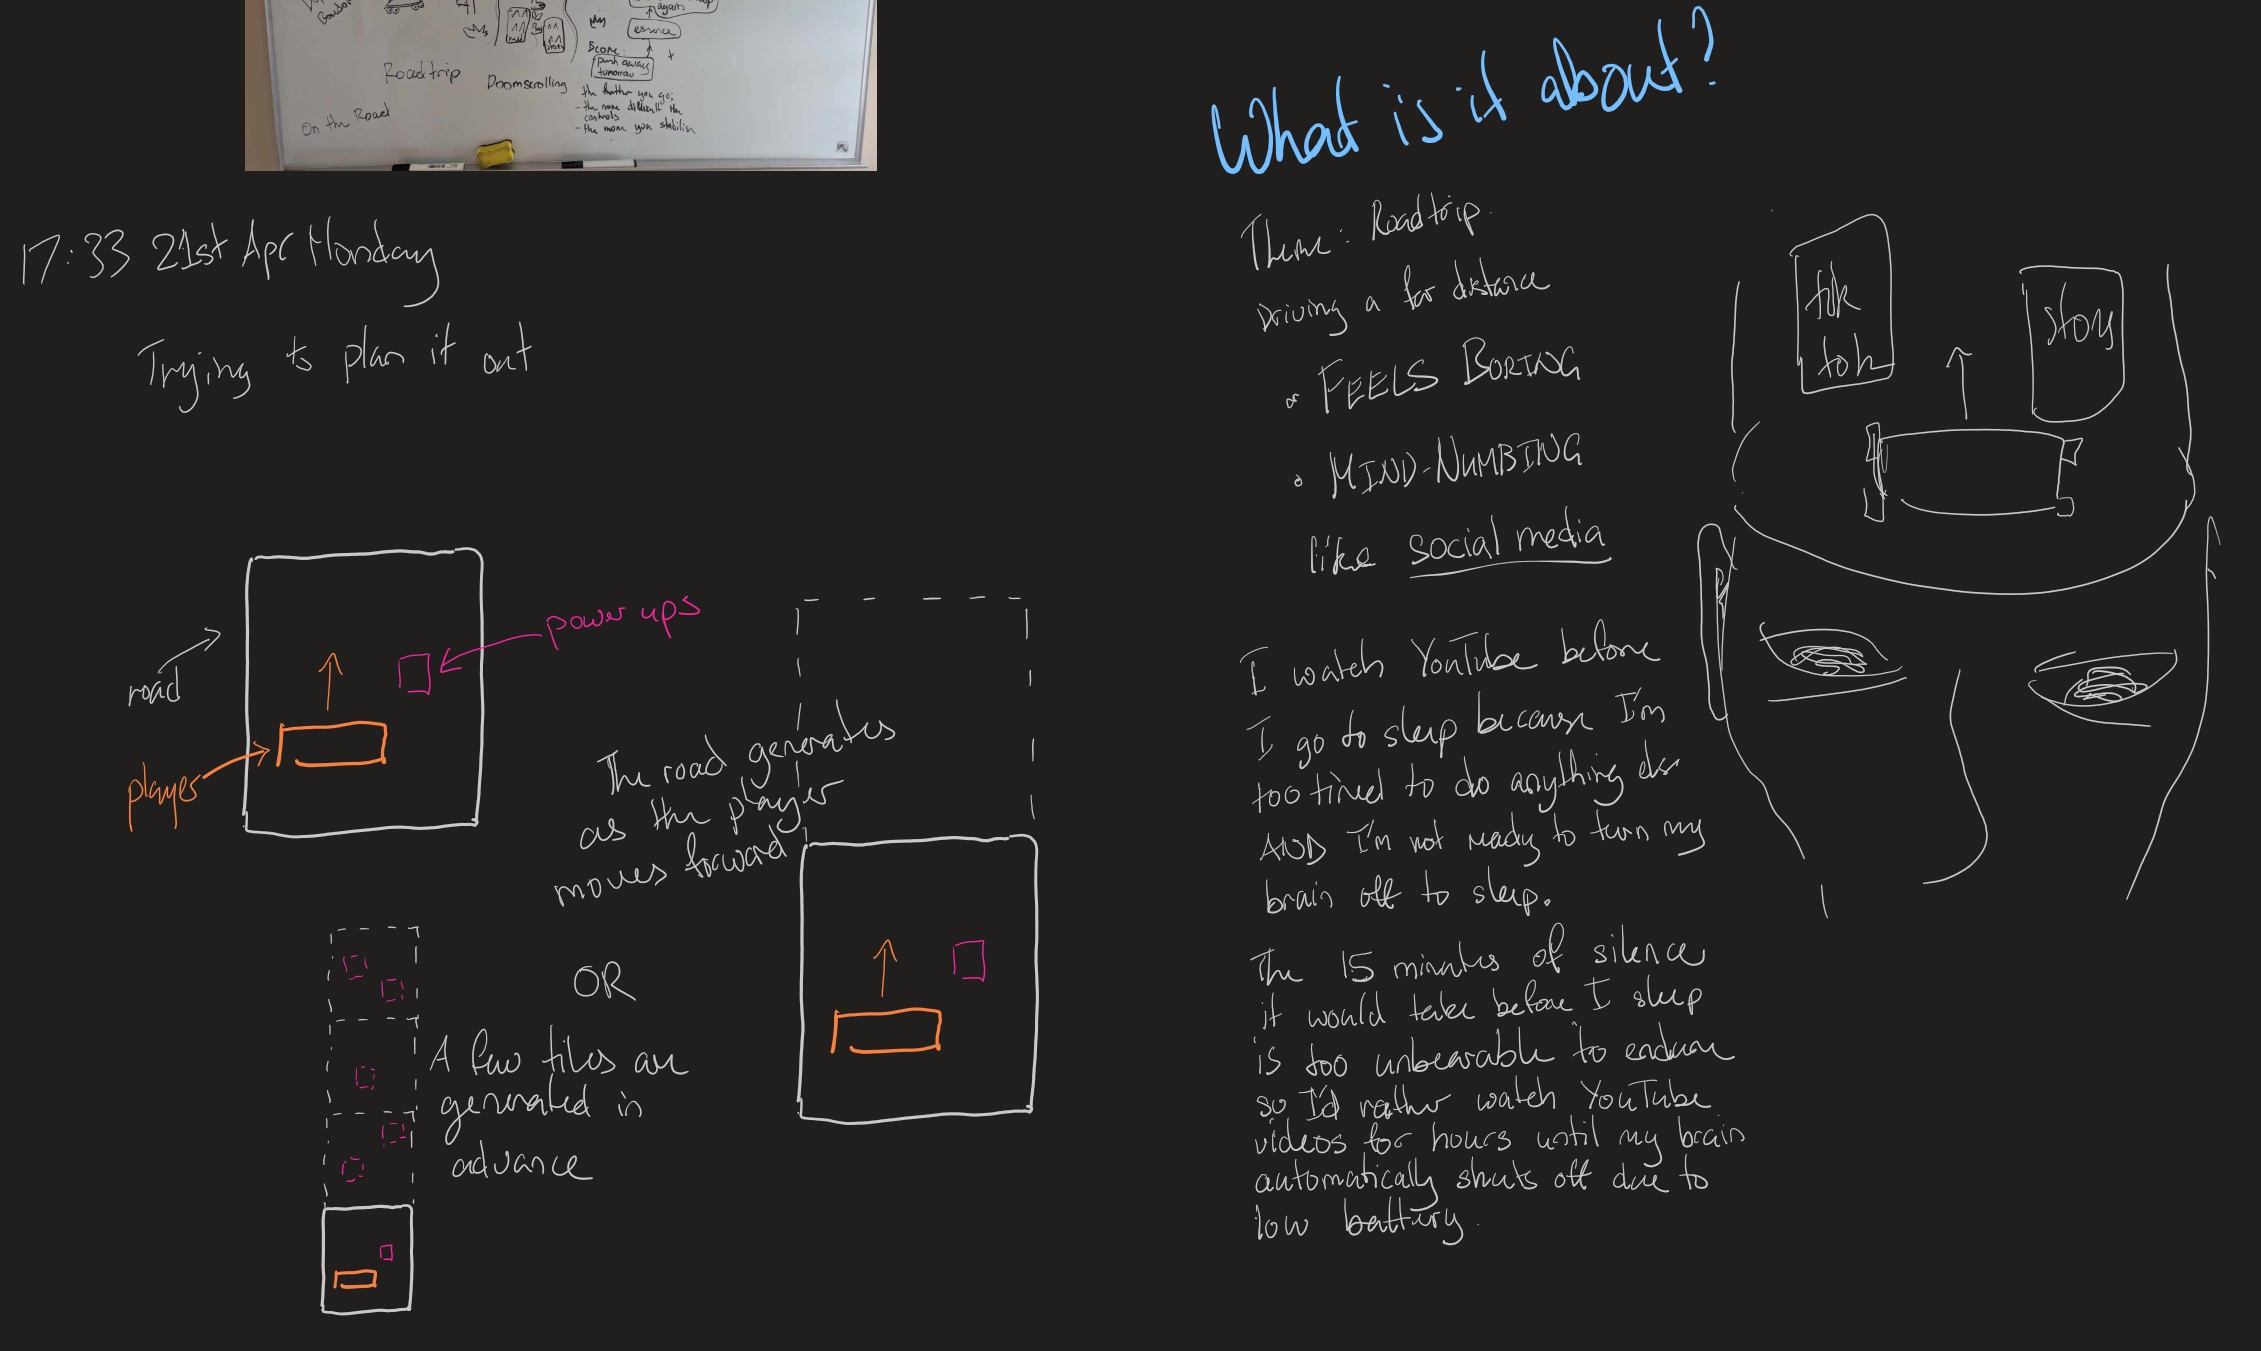 again
essence
Score:
push away
tomorrow
Roadtrip
Doomscrolling
the further you go:
- the more difficult the
controls
- the more you stabilise
On the Road
17:33 21st Apr Monday
Trying to plan it out
power ups
road
player
The road generates
as the player
moves forward
OR
A few tiles are
generated in
advance
What is it about?
Theme: Roadtrip.
Driving a far distance
• FEELS BORING
• MIND-NUMBING
like social media
tik
tok
story
I watch YouTube before
I go to sleep because I'm
too tired to do anything else
AND I'm not ready to turn my
brain off to sleep.
The 15 minutes of silence
it would take before I sleep
is too unbearable to endure
so I'd rather watch YouTube
videos for hours until my brain
automatically shuts off due to
low battery.